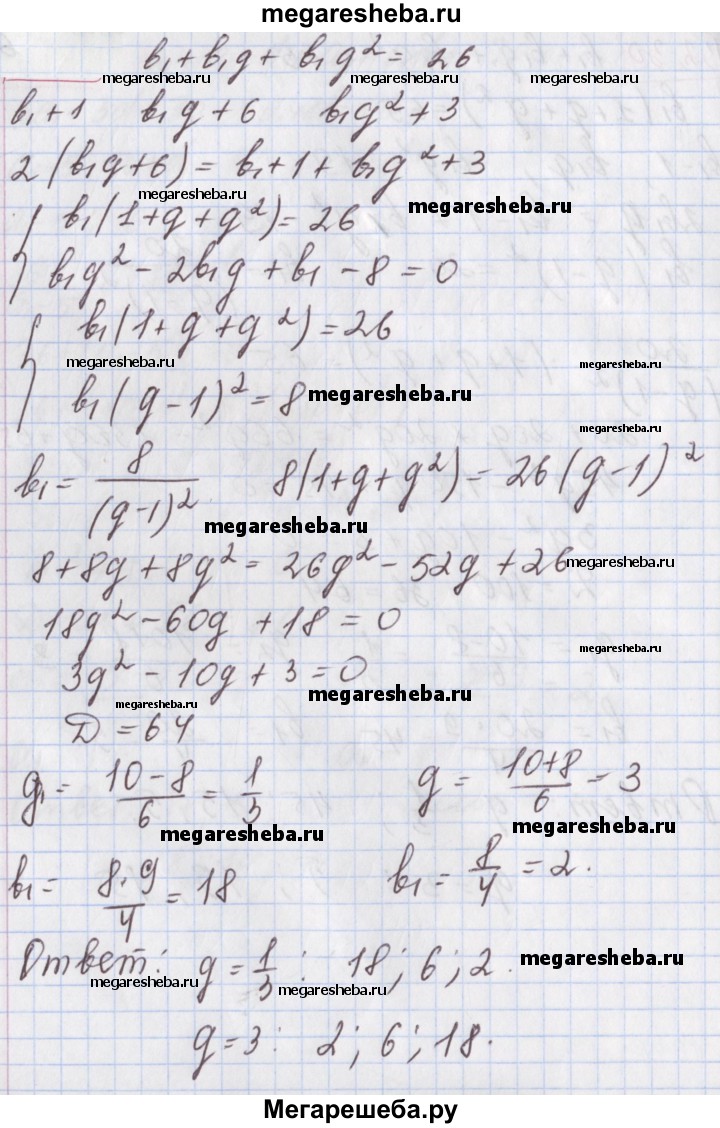 megaresheba.ru
b₁ + b₁g + b₁g² = 26
megaresheba.ru megaresheba.ru megaresheba.ru
b₁+1 b₁g+6 b₁g²+3
2(b₁g+6) = b₁+1+b₁g²+3
megaresheba.ru megaresheba.ru
{ b₁(1+g+g²) = 26
b₁g² - 2b₁g + b₁ - 8 = 0
{ b₁(1+g+g²) = 26
megaresheba.ru megaresheba.ru
b₁(g-1)² = 8 megaresheba.ru
megaresheba.ru
b₁ = 8/(g-1)² 8(1+g+g²) = 26(g-1)²
megaresheba.ru
8+8g+8g² = 26g² - 52g + 26
megaresheba.ru
18g² - 60g + 18 = 0
megaresheba.ru
3g² - 10g + 3 = 0
megaresheba.ru megaresheba.ru
D = 64
g₁ = (10-8)/6 = 1/3 g = (10+8)/6 = 3
megaresheba.ru megaresheba.ru
b₁ = (8·9)/4 = 18 b₁ = 8/4 = 2.
Ответ: g = 1/3: 18; 6; 2.
megaresheba.ru megaresheba.ru megaresheba.ru
g = 3: 2; 6; 18.
Мегарешеба.ру